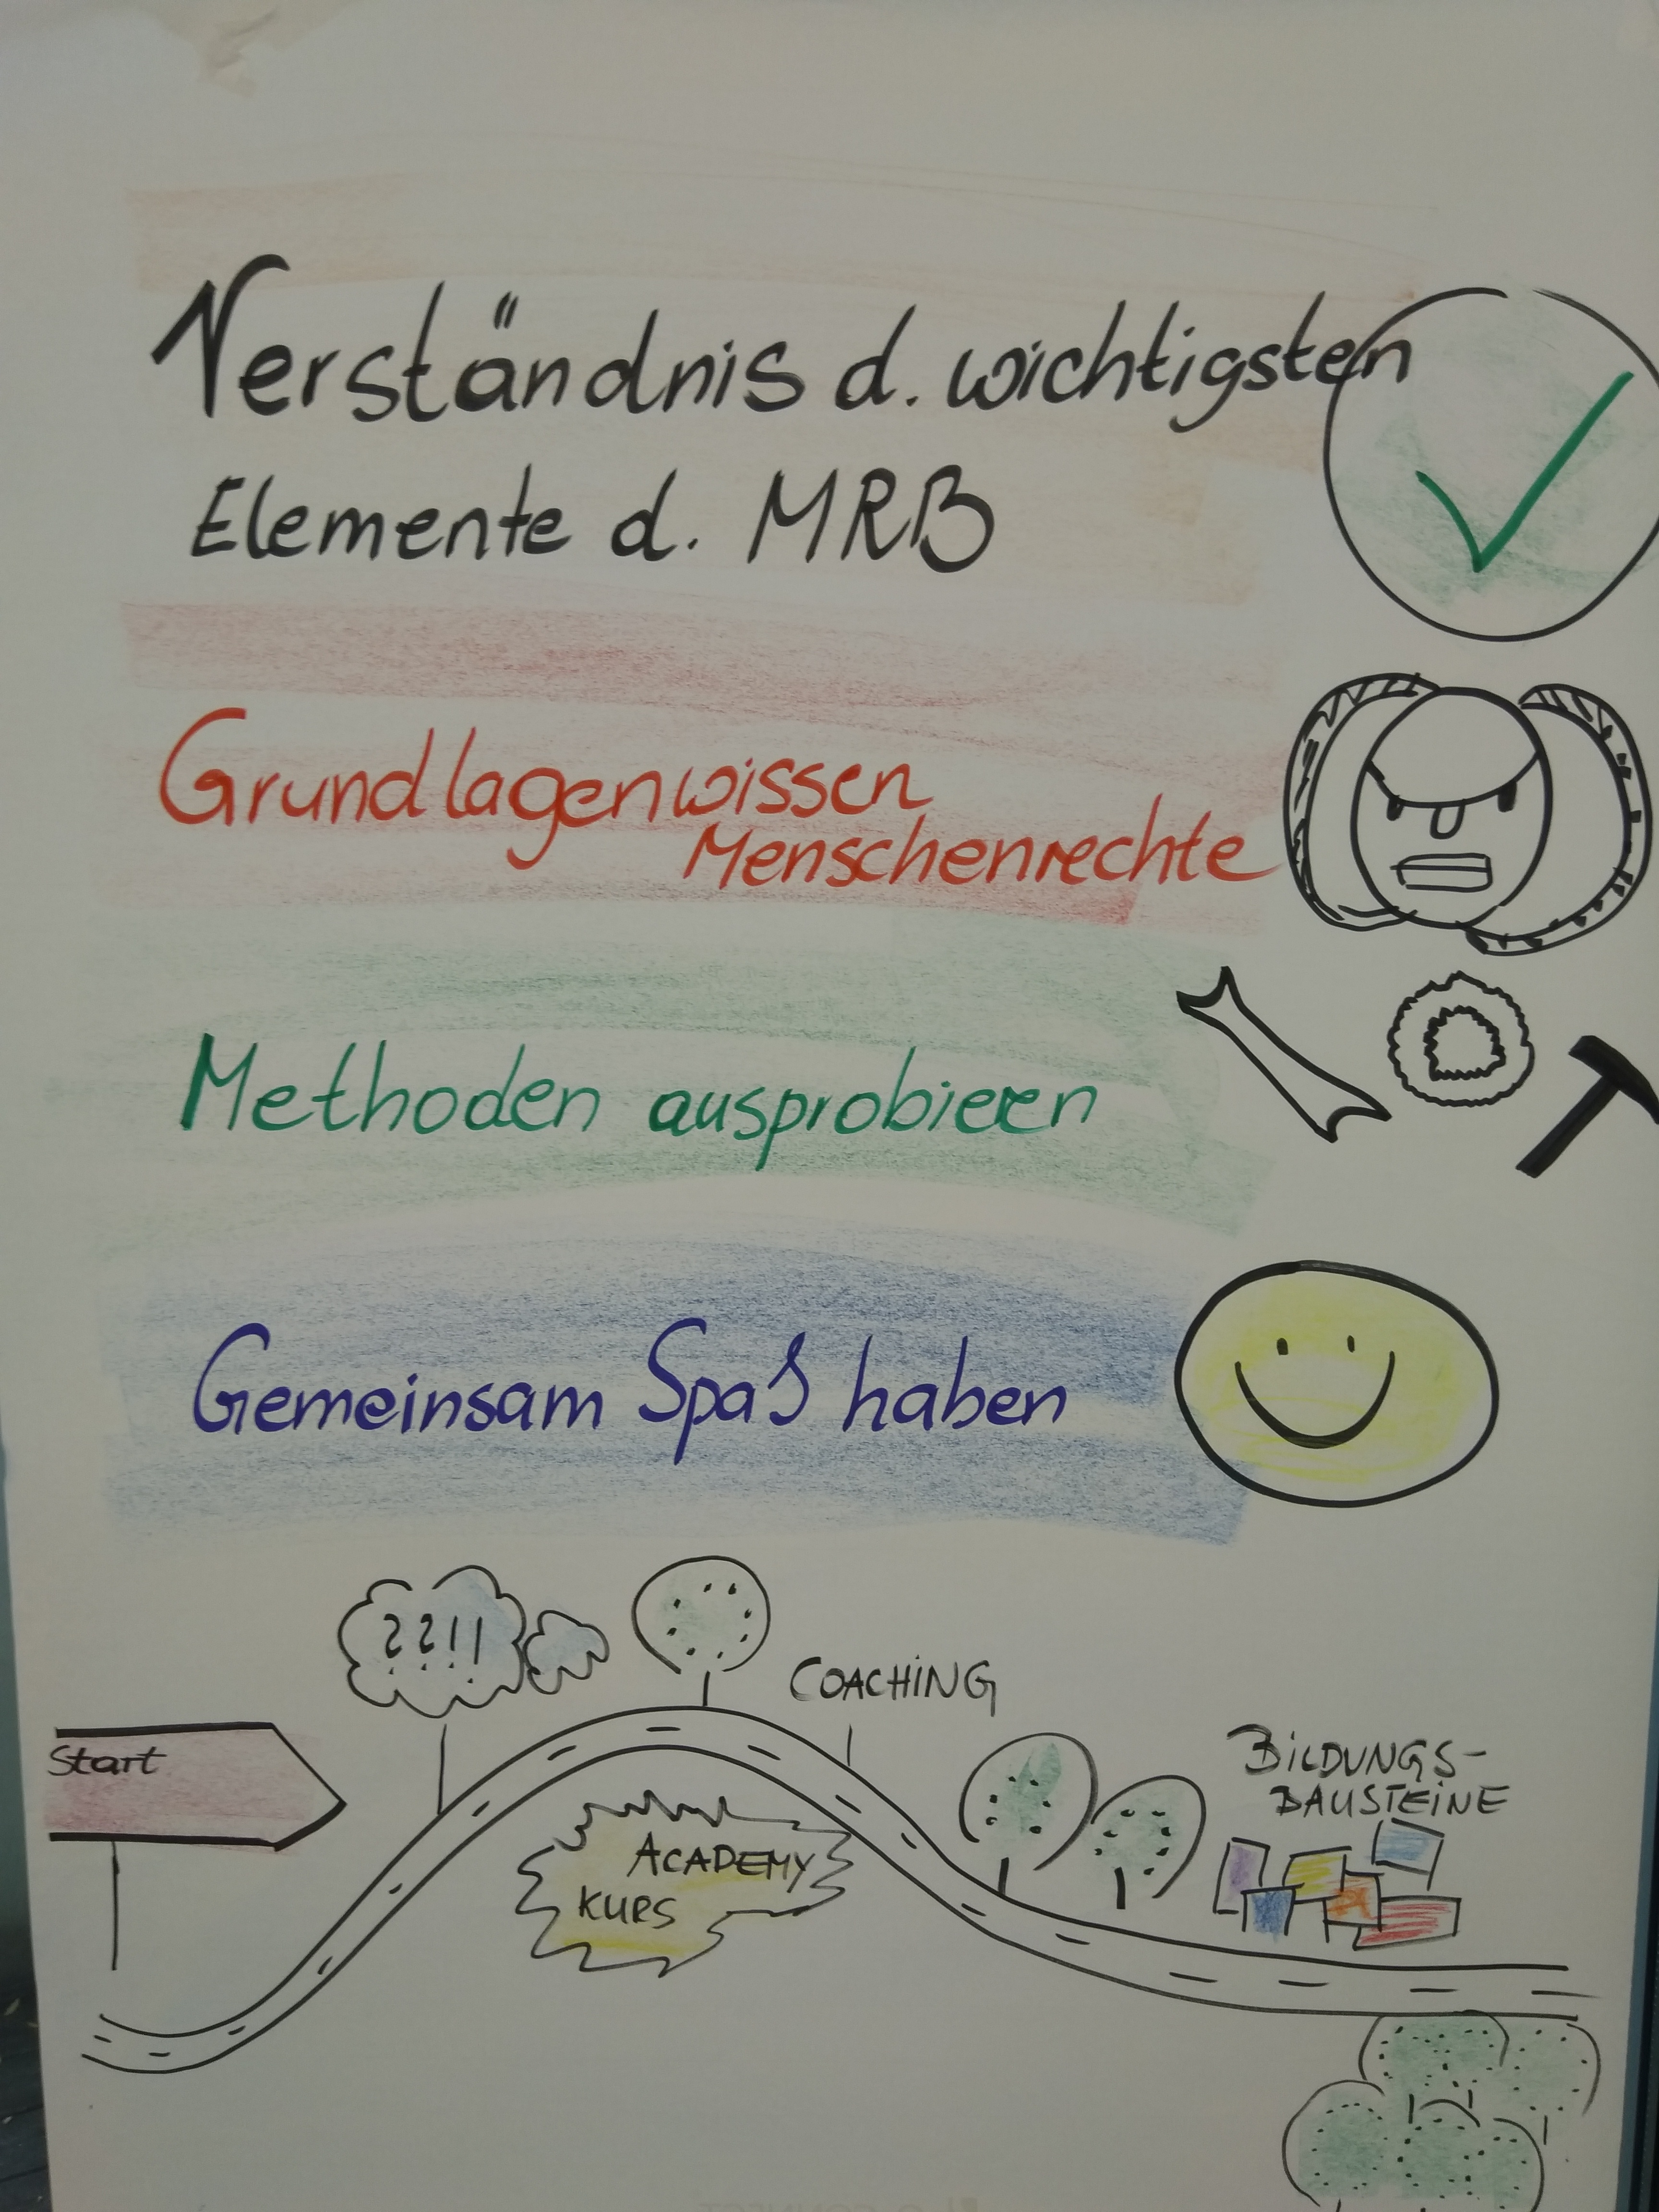 Verständnis d. wichtigsten
Elemente d. MRB
Grundlagenwissen
Menschenrechte
Methoden ausprobieren
Gemeinsam Spaß haben
??!!
COACHING
Start
BILDUNGS-
BAUSTEINE
ACADEMY
KURS